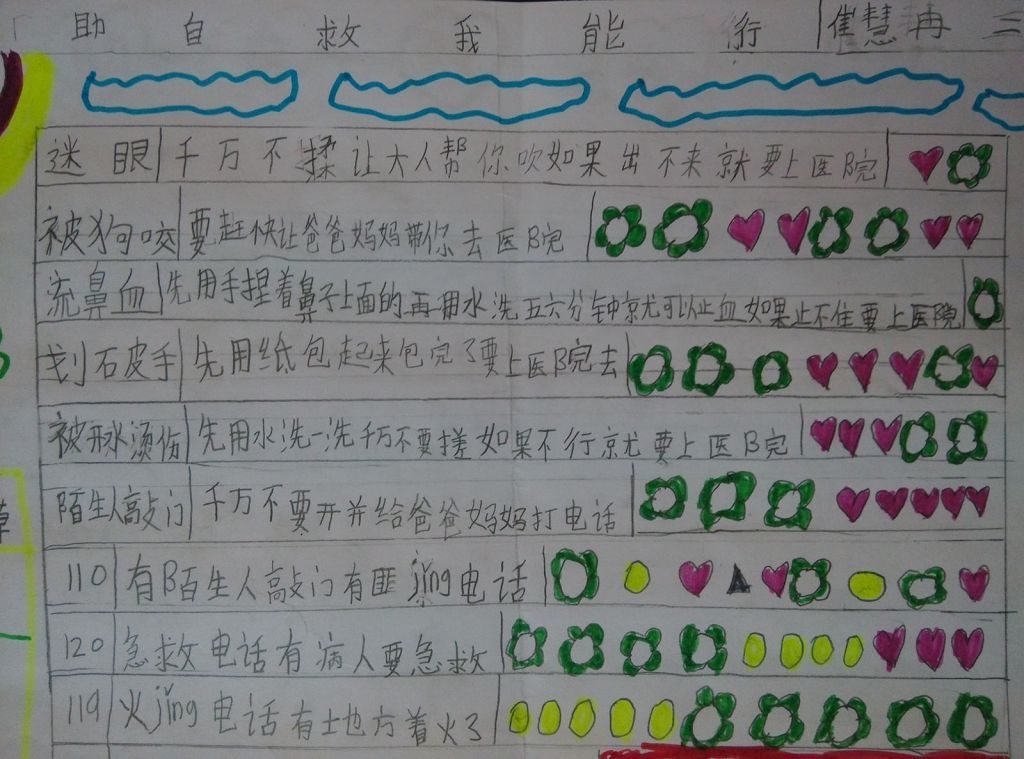 助 自 救 我 能 行 崔慧冉 三
迷眼 千万不揉让大人帮你吹如果出不来就要上医院
被狗咬 要赶快让爸爸妈妈带你去医院
流鼻血 先用手捏着鼻子上面的再用水洗五六分钟就可以止血如果止不住要上医院
划破手 先用纸包起来包完了要上医院去
被开水烫伤 先用水洗一洗千万不要搓如果不行就要上医院
陌生人敲门 千万不要开并给爸爸妈妈打电话
110 有陌生人敲门有匪jǐng电话
120 急救电话有病人要急救
119 火jǐng电话有地方着火了